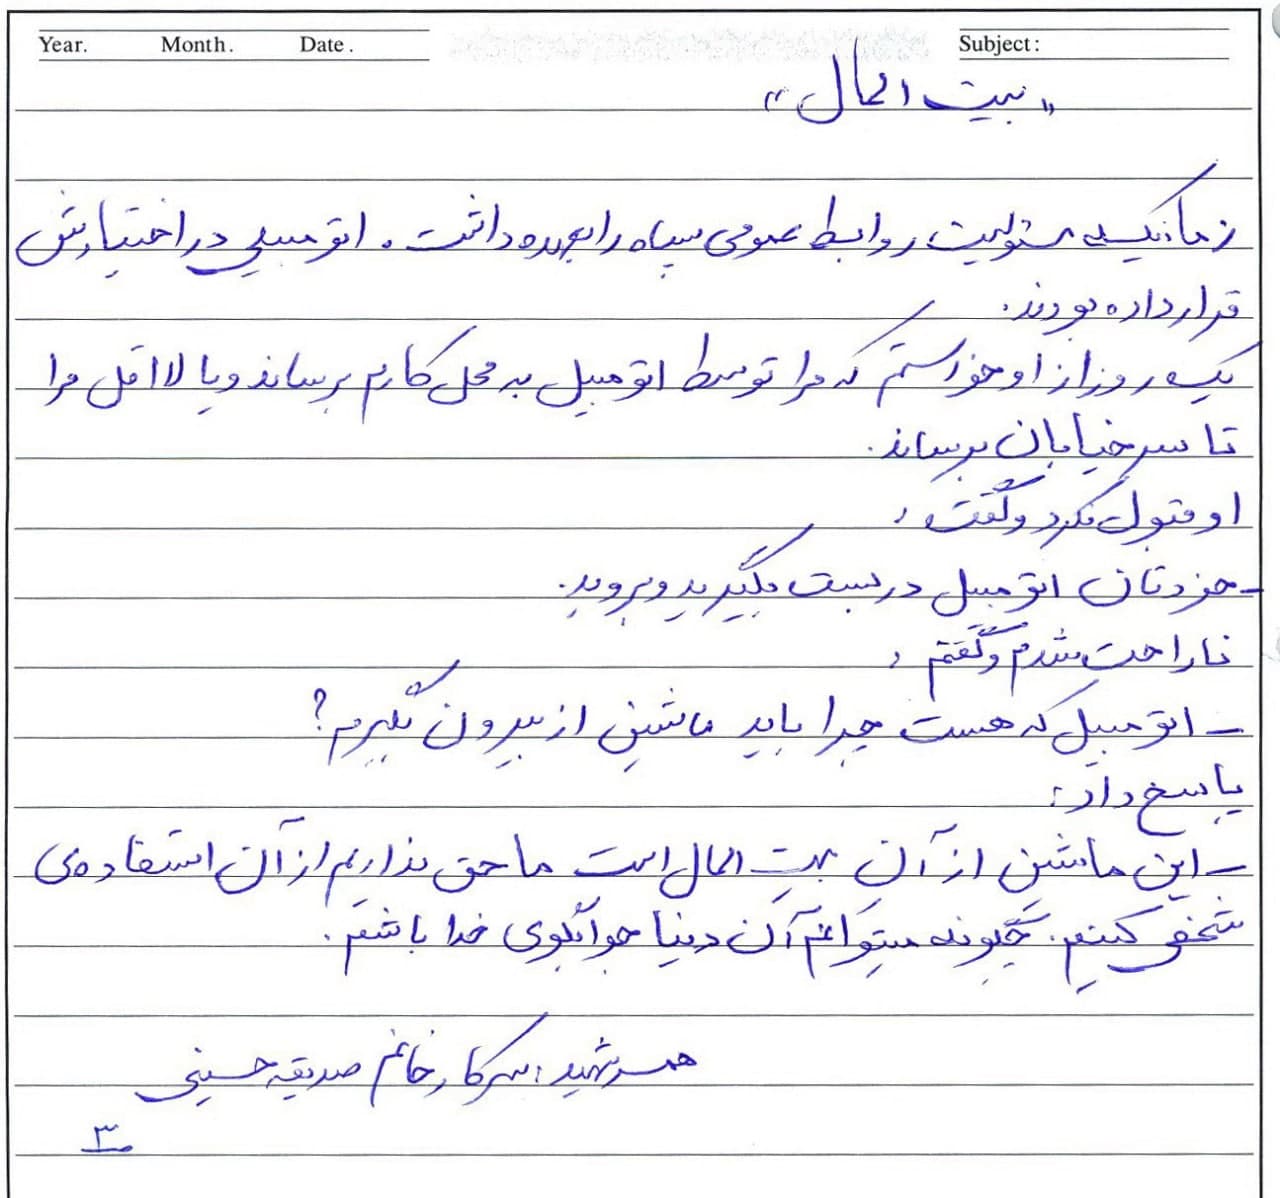 Year. Month. Date. Subject:
«بیت المال»
زمانیکه مسئولیت روابط عمومی سپاه را بعهده داشت. اتومبیلی در اختیارش
قرار داده بودند.
یک روز از او خواستم که مرا توسط اتومبیل به محل کارم برساند و یا لااقل مرا
تا سر خیابان برساند.
او قبول نکرد و گفت:
- خودتان اتومبیل دربست بگیرید و بروید.
ناراحت شدم و گفتم:
- اتومبیل که هست چرا باید ماشین از بیرون بگیرم؟
پاسخ داد:
- این ماشین از آن بیت المال است ما حق نداریم از آن استفاده‌ی
شخصی کنیم. چگونه میتوانم آن دنیا جوابگوی خدا باشم.
همسر شهید: سرکار خانم صدیقه حسینی
ص ۳